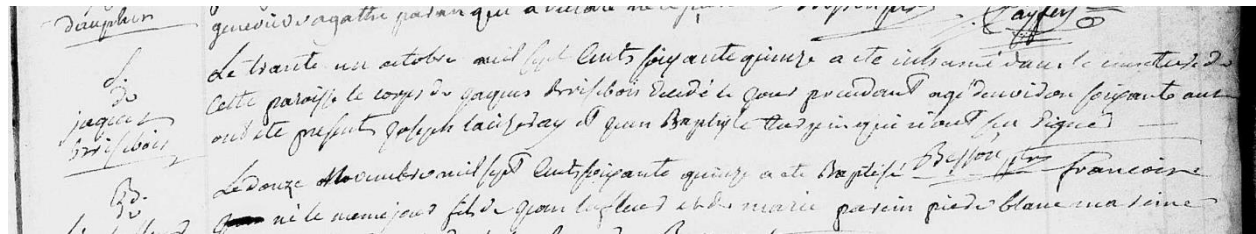 dauphin
genevieve agathe parain qui a declaré ne
S.
de
jaques
Brisebois
Le trante un octobre mil sept cents soixante quinze a ete inhumé dans le cimettiere de
Cette paroisse le corps de jaques Brisebois decedé le jour precedant agé d'environ soixante ans
ont ete present joseph et jean Baptiste qui n'ont su signer
Besson ptre
B.
de
Le douze Novembre mil sept cents soixante quinze a ete Baptisé francois
né le meme jour fils de jean lafleur et de marie parain piere blanc maraine